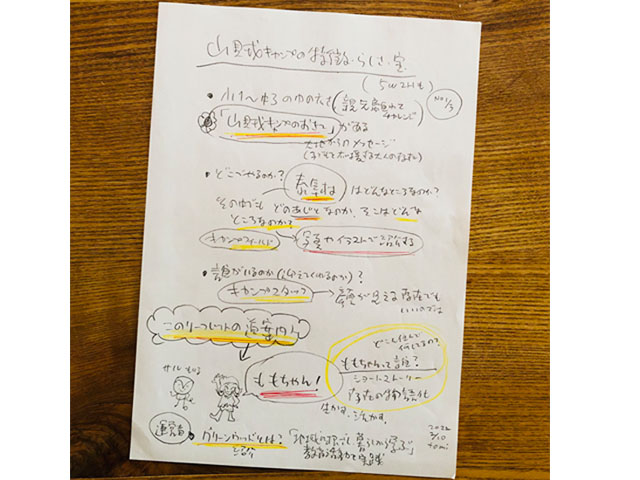 山賊キャンプの特徴・らしさ・宝
(5W2Hも)
No 1/3
・小1〜中3の中の大き(親元離れてチャレンジ)
「山賊キャンプのおきて」がある
大地からのメッセージ
・どこでやるのか?
泰阜村 はどんなところなのか?
その中でも どのあじとなのか、そこはどんな
ところなのか?
キャンプフィールド → 写真やイラストで紹介する
・誰がいるのか( )?
キャンプスタッフ → 顔が見える存在でも
いいのでは
このリーフレットの道案内人
ももちゃん!
どこに住んで
何してるの?
ももちゃんって誰?
ショートストーリー
存在の物語化
生かす、活かす。
サル もいる
運営者 ・グリーンウッドとは? 「地域に根ざし 暮らしから学ぶ」
紹介 教育活動を実践
2022
3/10